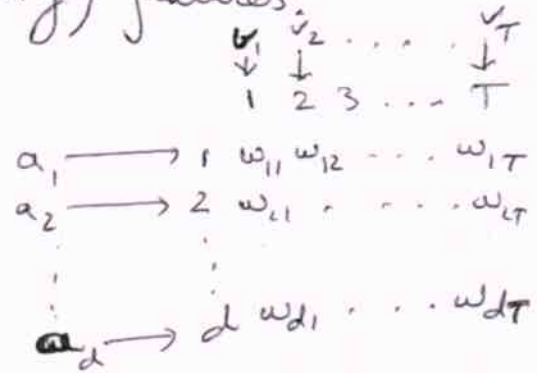 v₁ v₂ . . . . v_T
↓ ↓ ↓
1 2 3 ... T
a₁ → 1 w₁₁ w₁₂ ... w₁T
a₂ → 2 w₂₁ . . . . w₂T
⋮ ⋮
a_d → d w_d₁ . . . w_dT